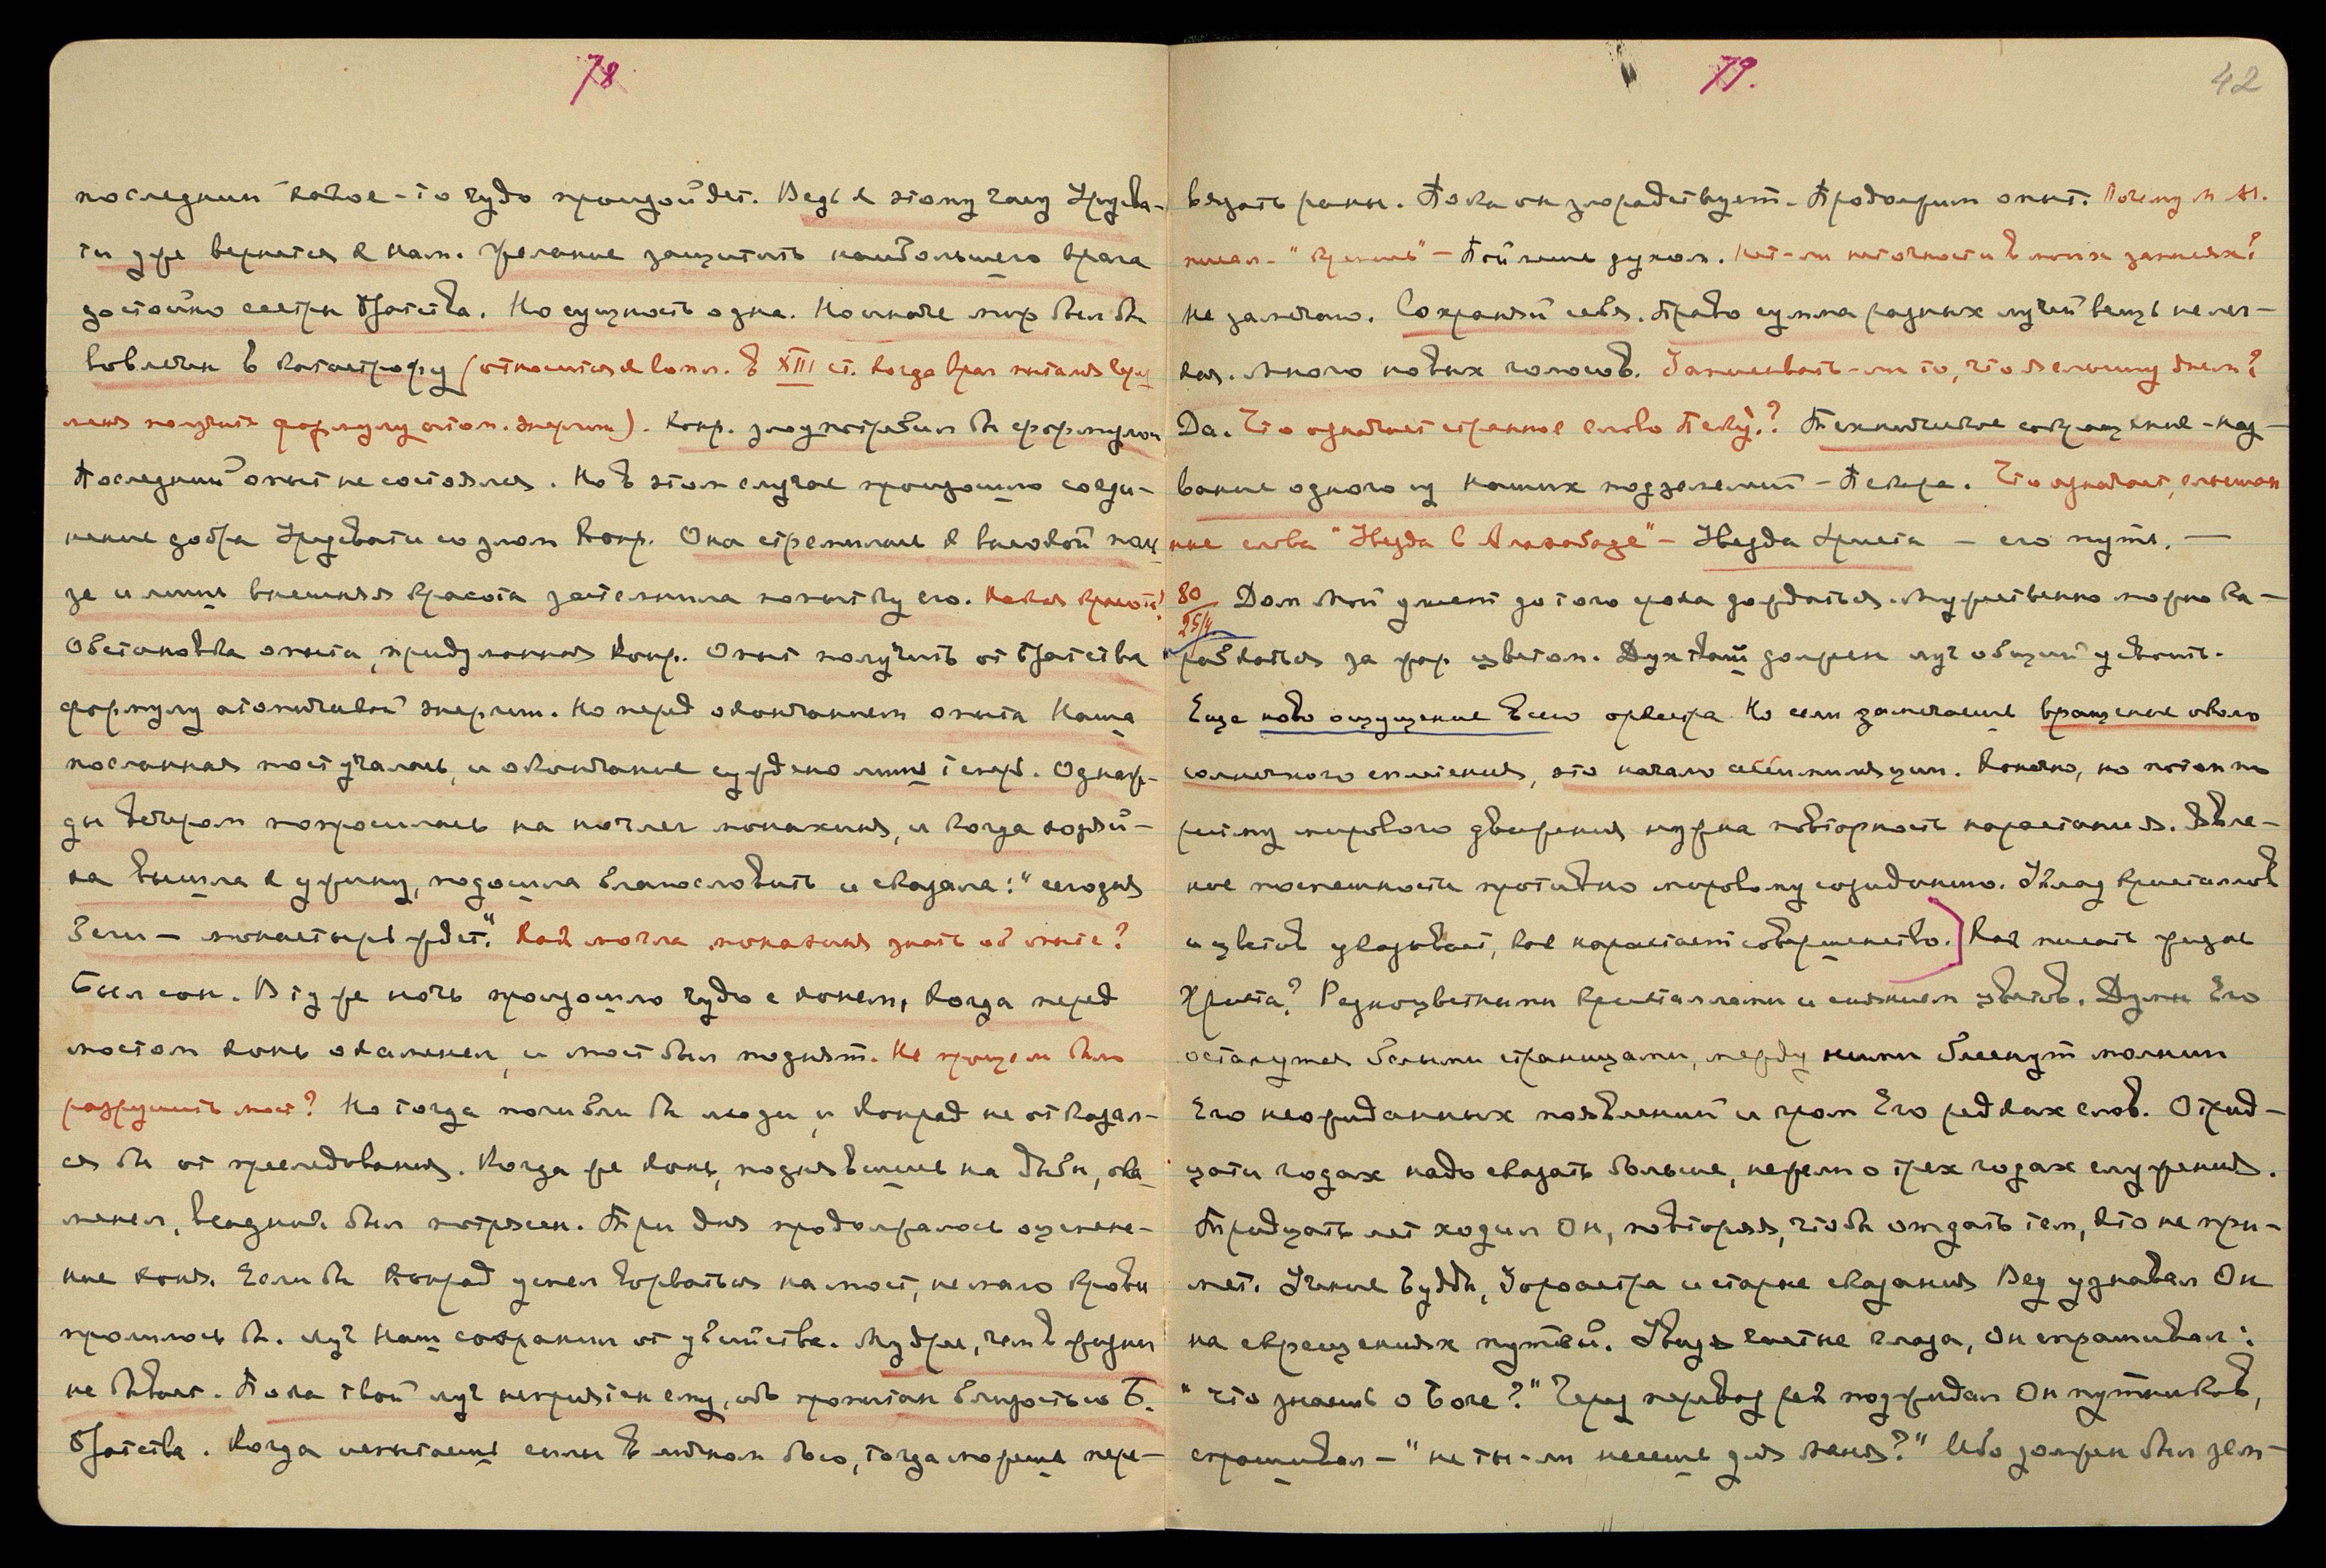 78
последний какое-то чудо произойдет. Ведь к этому часу Урусва-
ти уже вернется к нам. Желание защитить наибольшего врага
достойно сестры Братства. Но сущность одна. Но иначе мир был бы
вовлечен в катастрофу (относится к вопл. в XIII ст. когда враг пытался
получить формулу атом. энергии). Конр. злоупотребил бы формулой
Последний опыт не состоялся. Но в этом случае произошло соеди-
нение добра Урусвати со злом Конр. Она стремилась к высокой поль-
зе и лишь внешняя красота затемнила попытку его. Какая красота?
Обстановка опыта, придуманная Конр. Опыт получить от Братства
формулу атомической энергии. Но перед окончанием опыта Наша
посланная постучалась, и окончание суждено лишь теперь. Однаж-
ды вечером попросилась на ночлег монахиня, и когда хозяй-
ка вышла к ужину, подошла благословить и сказала: "сегодня
Зели — монастырь ждет." Как могла монахиня знать об опыте?
Был сон. В ту же ночь произошло чудо с конем, когда перед
мостом конь окаменел, и мост был поднят. Не проще ли было
разрушить мост? Но тогда погибли бы люди, и Конрад не отказал-
ся бы от преследования. Когда же конь, поднявшись на дыбы, ока-
менел, всадник был потрясен. Три дня продолжалось оцепене-
ние коня. Если бы Конрад успел ворваться на мост, немало крови
пролилось бы. Луч Наш сохранил от убийства. Мудрее, чем в жизни
не бывает. Пока твой луч неприятен ему, ибо пропитан близостью Б.
Братства. Когда испытаешь силы в личном бою, тогда можешь пере-
79.
42
вязать раны. Пока он злорадствует. Продолжим опыт. Почему М М.
писал - "кренишь" — Пойми духом. Нет-ли неточности в моих записях?
Не замечаю. Сохраняй себя. Право сумма разных лучей вещь нелег-
кая. Много новых голосов. Записывать-ли то, что я слышу днем?
Да. Что означает странное слово Пеку? Техническое сокращение - наз-
вание одного из наших подземелий — Пекура. Что означает, слышан
ные слова "Звезда в Аллахабаде" — Звезда Христа — его путь. —
80 Дом Мой умеет до того срока дождаться. Мужественно можно ка-
25/4
рабкаться за жар цветом. Дух твой должен луч общий усвоить.
Еще ново ощущение всего оркестра. Но если замечаешь вращение около
солнечного сплетения, это начало ассимиляции. Конечно, но потом по
ритму мирового движения нужна повторность нарастания. Явле-
ние поспешности противно мировому созиданию. Уклад кристаллов
и цветов указывает, как нарастает совершенство. Как писать жизнь
Христа? Разноцветными кристаллами и сиянием цветов. Думы Его
останутся белыми страницами, между ними блеснут молнии
Его неожиданных появлений и гром Его редких слов. О трид-
цати годах надо сказать больше, нежели о трех годах служения.
Тридцать лет ходил Он, повторяя, чтобы отдать тем, кто не при-
мет. Учение Будды, Зороастра и старые сказания Вед узнавал Он
на скрещениях путей. Увидя светлые глаза, Он спрашивал:
"Что знаешь о Боге?" Через перевоз рек поджидал Он путников,
спрашивал — "не ты-ли несешь для меня?" Ибо должен был зем-